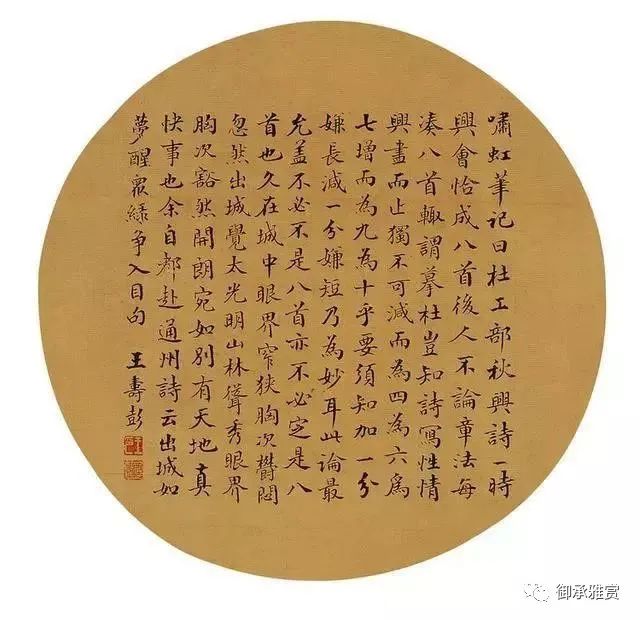 嘯虹筆記曰杜工部秋興詩一時
興會恰成八首後人不論章法每
湊八首輒謂摹杜豈知詩寫性情
興盡而止獨不可減而為四為六為
七增而為九為十乎要須知加一分
嫌長減一分嫌短乃為妙耳此論最
允蓋不必不是八首亦不必定是八
首也久在城中眼界窄狹胸次鬱悶
忽然出城覺太光明山林聳秀眼界
胸次豁然開朗宛如別有天地真
快事也余自都赴通州詩云出城如
夢醒眾綠爭入目句
王壽彭
御承雅赏